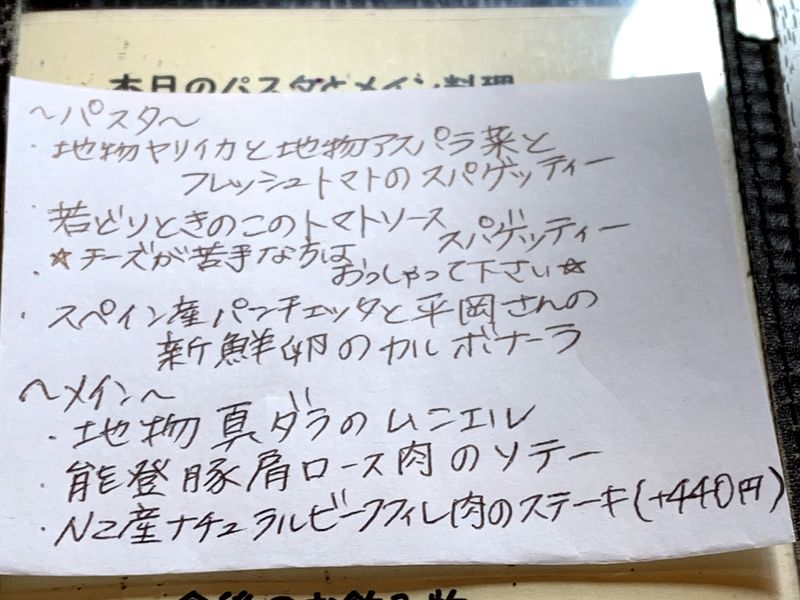 本日のパスタとメイン料理
〜パスタ〜
・地物ヤリイカと地物アスパラ菜と
フレッシュトマトのスパゲッティー
若どりときのこのトマトソース
スパゲッティー
☆チーズが苦手な方は
・おっしゃって下さい☆
・スペイン産パンチェッタと平岡さんの
新鮮卵のカルボナーラ
〜メイン〜
・地物真ダラのムニエル
・能登豚肩ロース肉のソテー
・NZ産ナチュラルビーフフィレ肉のステーキ(+440円)
食後のお飲み物